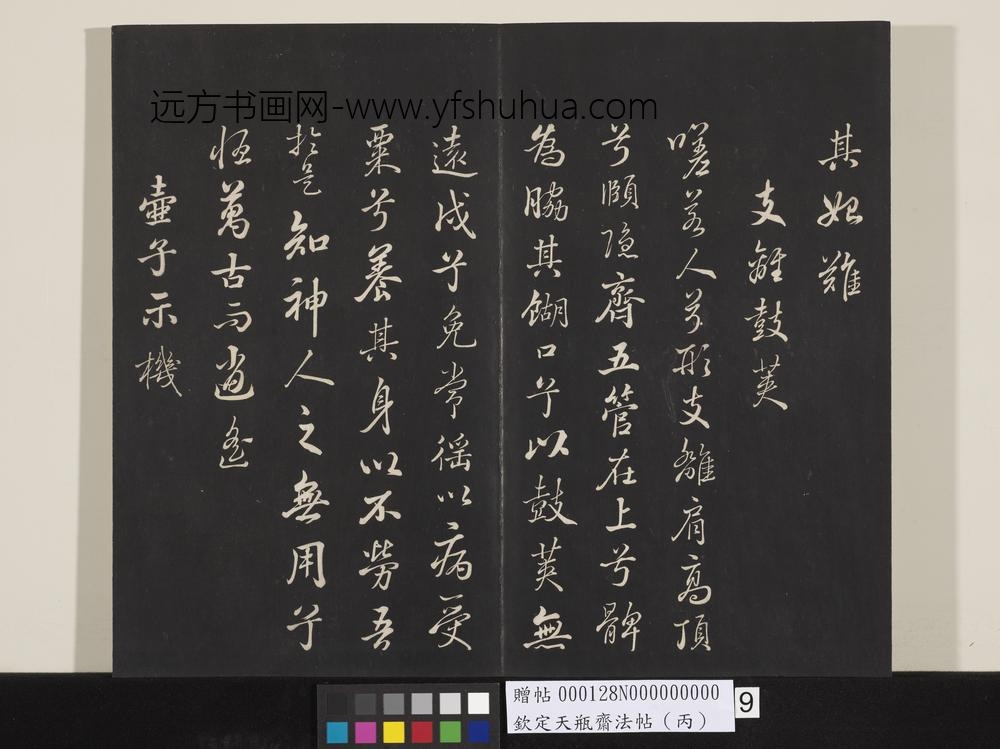 远方书画网-www.yfshuhua.com
其難
支離鼓莢
嗟若人兮形支離肩高頂
兮頤隱齊五管在上兮髀
為脇其餬口兮以鼓莢無
遠戍兮免常徭以病受
粟兮養其身以不勞吾
於是知神人之無用兮
恆萬古而逍遙
壺子示機
贈帖 000128N000000000
欽定天瓶齋法帖(丙)
9